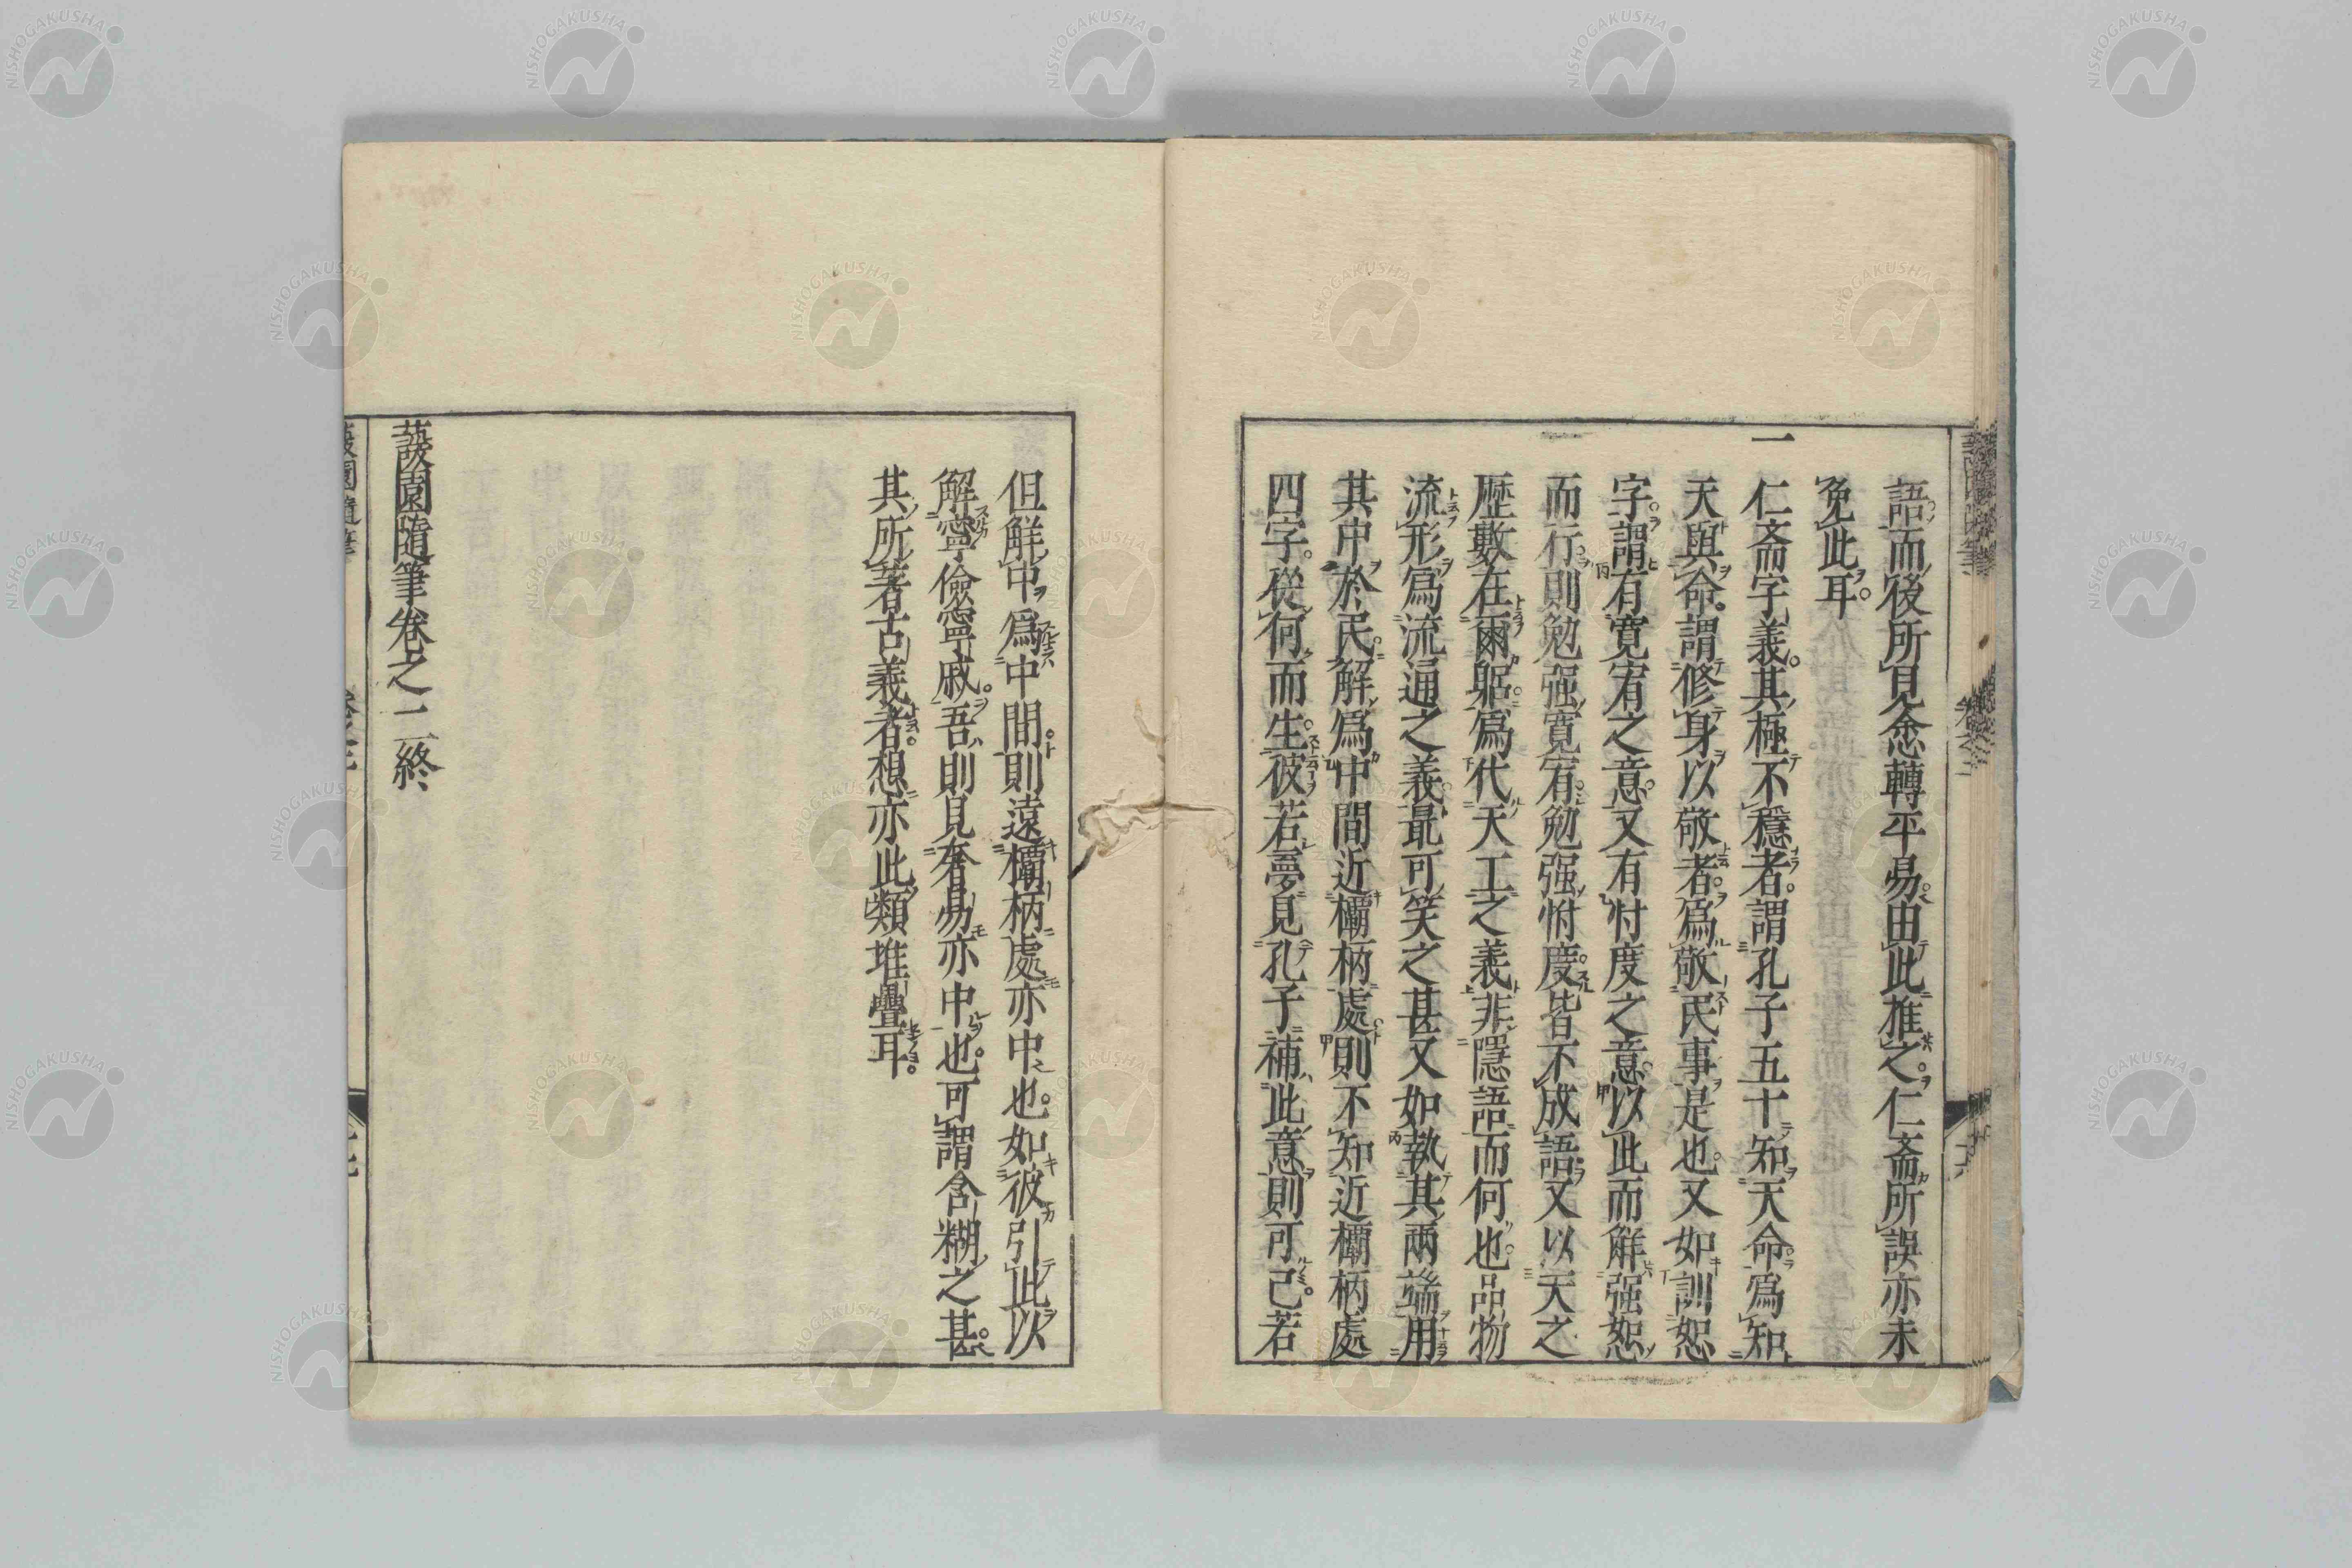 語而後所見悆轉平易由此推之仁斎所誤亦未
免此耳
一仁斎字義其極不穩者謂孔子五十知天命爲知
天與命謂修身以敬者爲敬民事是也又如訓恕
字謂有寛宥之意又有忖度之意以此而解强恕
而行則勉强寛宥勉强忖度皆不成語又以天之
歷數在爾躬爲代天工之義非隱語而何也品物
流形爲流通之義最可笑之甚又如執其兩端用
其中於民解爲中間近欛柄處則不知近欛柄處
四字從何而生彼若夢見孔子補此意則可已若
但解中爲中間則遠欛柄處亦中也如彼引此以
解寧儉寧戚吾則見奢易亦中也可謂含糊之甚
其所著古義者想亦此類堆疊耳
蘐園隨筆卷之二終